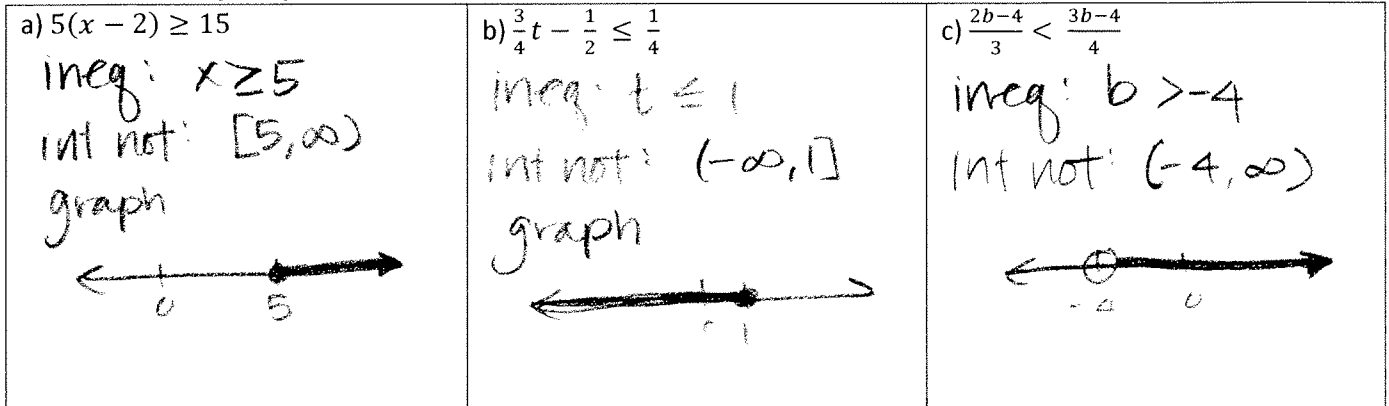 a) 5(x − 2) ≥ 15
ineq: x ≥ 5
int not: [5, ∞)
graph
0 5
b) 3/4 t − 1/2 ≤ 1/4
ineq: t ≤ 1
int not: (-∞, 1]
graph
1
c) 2b−4/3 < 3b−4/4
ineq: b > -4
int not: (-4, ∞)
-4 0